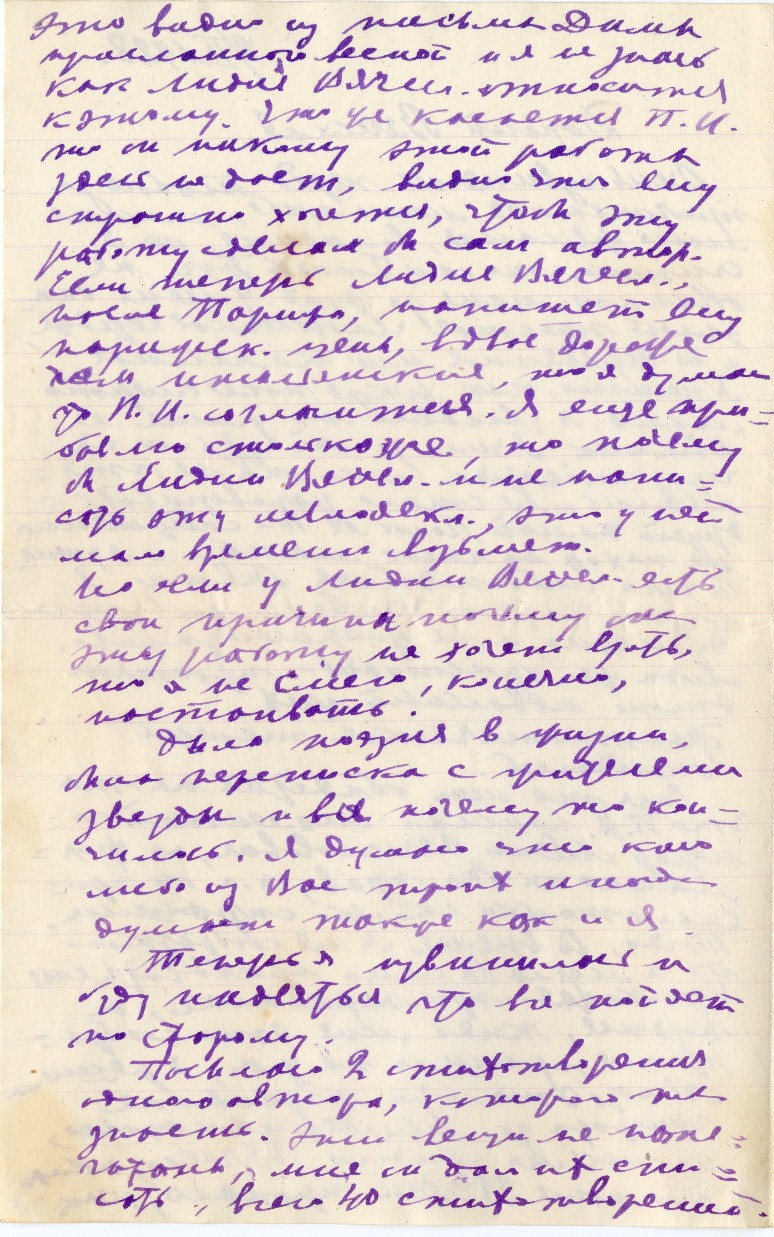 это видно из письма Димы
присланного весной и я не знаю
как Лидия Вячесл. относится
к этому. Что же касается П. И.
то он никому этой работы
здесь не дает, видно что ему
страшно хочется, чтоб эту
работу сделал бы сам автор.
Если теперь Лидия Вячесл.,
после Парижа, напишет ему
парижск. цены, вдвое дороже
чем итальянские, то я думаю
что П. И. согласится. Я еще при=
бавлю столько же, то почему
бы Лидии Вячесл. и не напи=
сать эту, это у неё
мало времени возьмет.
Но если у Лидии Вячесл. есть
свои причины почему она
эту работу не хочет брать,
то я не смею, конечно,
настаивать.
Была поэзия в жизни,
была переписка с жителями
звезды и всё почему то кон-
чилось. Я думаю что кто
либо из Вас троих иногда
думает также как и я.
Теперь я извинилась и
буду надеяться что всё пойдет
по старому.
Посылаю 2 стихотворения
одного автора, которого ты
знаешь. Эти вещи не напе=
чатаны, мне он дал их спи=
сать, всего 40 стихотворений.